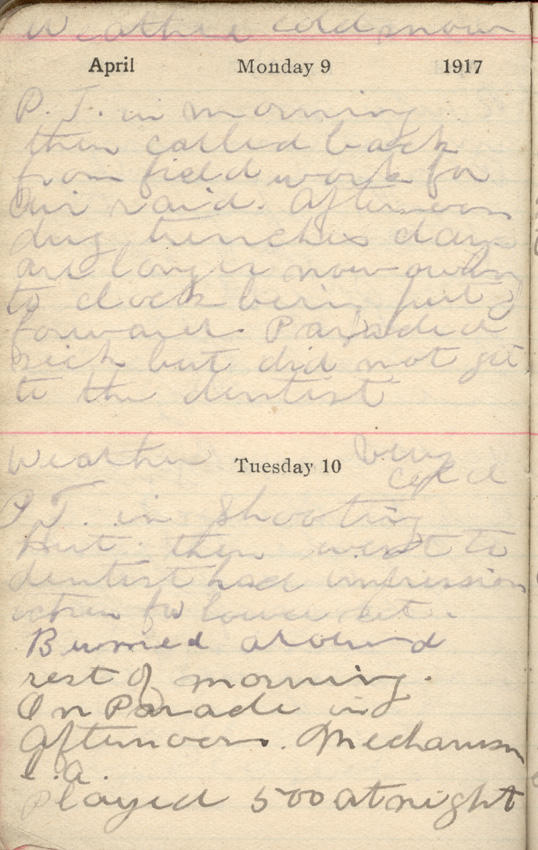 Weather cold snow
April Monday 9 1917
P. T. in morning
then called back
from field work for
Our raid. Afternoon
dug trenches days
are longer now owing
to clock being put
forward. Paraded
sick but did not get
to the dentist
Weather very
Tuesday 10
cold
P T. in Shooting
Hut then went to
dentist had impression
taken for lower set.
Bummed around
rest of morning.
On Parade in
afternoon. Mechanism
played 500 at night